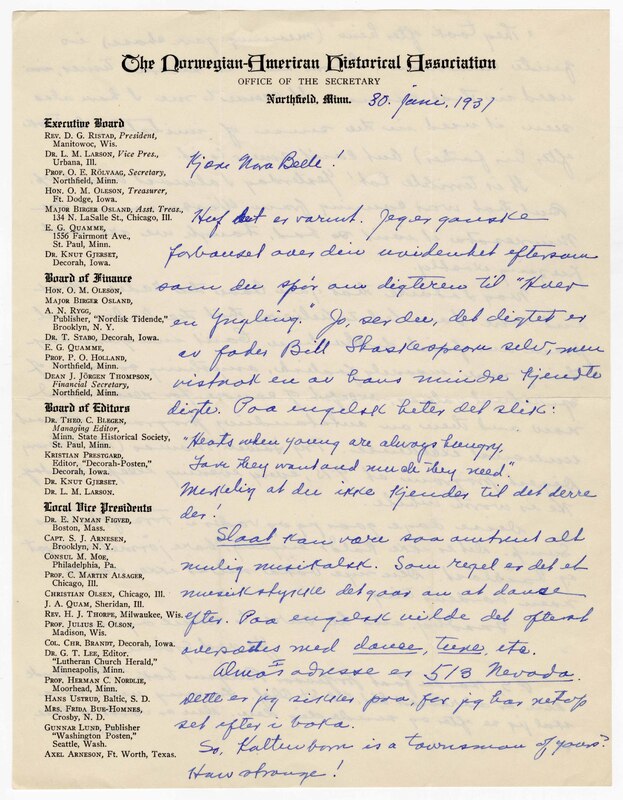 The Norwegian-American Historical Association
OFFICE OF THE SECRETARY
Northfield, Minn. 30. juni, 1931
Executive Board
REV. D. G. RISTAD, President,
Manitowoc, Wis.
DR. L. M. LARSON, Vice Pres.,
Urbana, Ill.
PROF. O. E. RÖLVAAG, Secretary,
Northfield, Minn.
HON. O. M. OLESON, Treasurer,
Ft. Dodge, Iowa.
MAJOR BIRGER OSLAND, Asst. Treas.,
134 N. LaSalle St., Chicago, Ill.
E. G. QUAMME,
1556 Fairmont Ave.,
St. Paul, Minn.
DR. KNUT GJERSET,
Decorah, Iowa.
Board of Finance
HON. O. M. OLESON,
MAJOR BIRGER OSLAND,
A. N. RYGG,
Publisher, "Nordisk Tidende,"
Brooklyn, N. Y.
DR. T. STABO, Decorah, Iowa.
E. G. QUAMME,
PROF. P. O. HOLLAND,
Northfield, Minn.
DEAN J. JÖRGEN THOMPSON,
Financial Secretary,
Northfield, Minn.
Board of Editors
DR. THEO. C. BLEGEN,
Managing Editor,
Minn. State Historical Society,
St. Paul, Minn.
KRISTIAN PRESTGARD,
Editor, "Decorah-Posten,"
Decorah, Iowa.
DR. KNUT GJERSET.
DR. L. M. LARSON.
Local Vice Presidents
DR. E. NYMAN FIGVED,
Boston, Mass.
CAPT. S. J. ARNESEN,
Brooklyn, N. Y.
CONSUL M. MOE,
Philadelphia, Pa.
PROF. C. MARTIN ALSAGER,
Chicago, Ill.
CHRISTIAN OLSEN, Chicago, Ill.
J. A. QUAM, Sheridan, Ill.
REV. H. J. THORPE, Milwaukee, Wis.
PROF. JULIUS E. OLSON,
Madison, Wis.
COL. CHR. BRANDT, Decorah, Iowa.
DR. G. T. LEE, Editor,
"Lutheran Church Herald,"
Minneapolis, Minn.
PROF. HERMAN C. NORDLIE,
Moorhead, Minn.
HANS USTRUD, Baltic, S. D.
MRS. FRIDA BUE-HOMNES,
Crosby, N. D.
GUNNAR LUND, Publisher
"Washington Posten,"
Seattle, Wash.
AXEL ARNESON, Ft. Worth, Texas.
Kjære Nora Beele!
Huf det er varmt. Jeg er ganske
forbauset over din uvidenhet eftersom
som du spör om digteren til "Hver
en Yngling." Jo, ser du, det digtet er
av fader Bill Shaskespeare selv, men
vistnok en av hans mindre kjendte
digte. Paa engelsk heter det slik:
"Hearts when young are always hungry,
Love they want and much they need".
Merkelig at du ikke kjendes til det derre
der!
Slaat kan være saa omtrent alt
mulig musikalsk. Som regel er det et
musikstykke det gaar an at danse
efter. Paa engelsk vilde det oftest
oversættes med dance, tune, etc.
Almas adresse er 513 Nevada.
Dette er jeg sikker paa, for jeg har netop
set efter i boka.
So, Kaltenborn is a townsman of yours?
How strange!